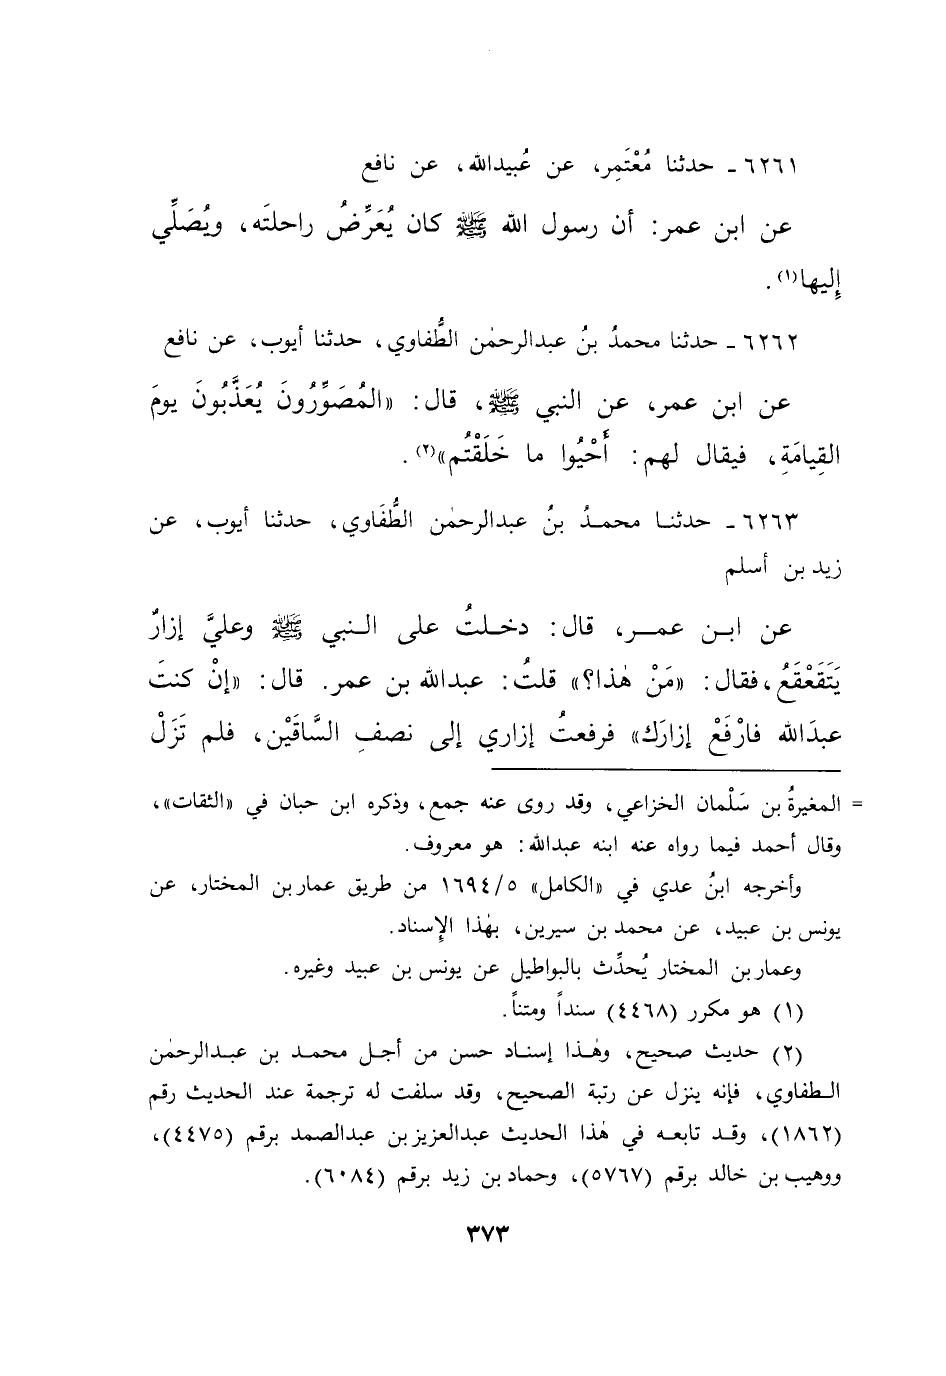 ٦٢٦١ ـ حدثنا مُعْتَمِر، عن عُبيدالله، عن نافع
عن ابن عمر: أن رسول الله ﷺ كان يُعَرِّضُ راحلتَه، ويُصَلِّي
إِليها(١).
٦٢٦٢ ـ حدثنا محمدُ بنُ عبدالرحمٰن الطُّفاوي، حدثنا أيوب، عن نافع
عن ابن عمر، عن النبي ﷺ، قال: «المُصَوِّرُونَ يُعَذَّبُونَ يومَ
القِيامَةِ، فيقال لهم: أَحْيُوا ما خَلَقْتُم»(٢).
٦٢٦٣ ـ حدثنا محمدُ بنُ عبدالرحمٰن الطُّفَاوي، حدثنا أيوب، عن
زيد بن أسلم
عن ابن عمر، قال: دخلتُ على النبي ﷺ وعليَّ إزارٌ
يَتَقَعْقَعُ، فقال: «مَنْ هٰذا؟» قلتُ: عبدالله بن عمر. قال: «إنْ كنتَ
عبدَالله فارْفَعْ إزارَك» فرفعتُ إزاري إلى نصفِ السَّاقَيْن، فلم تَزَلْ
= المغيرةُ بن سَلْمان الخزاعي، وقد روى عنه جمع، وذكره ابن حبان في «الثقات»،
وقال أحمد فيما رواه عنه ابنه عبدالله: هو معروف.
وأخرجه ابنُ عدي في «الكامل» ١٦٩٤/٥ من طريق عمار بن المختار، عن
يونس بن عبيد، عن محمد بن سيرين، بهٰذا الإِسناد.
وعمار بن المختار يُحدِّث بالبواطيل عن يونس بن عبيد وغيره.
(١) هو مكرر (٤٤٦٨) سنداً ومتناً.
(٢) حديث صحيح، وهٰذا إسناد حسن من أجل محمد بن عبدالرحمٰن
الطفاوي، فإنه ينزل عن رتبة الصحيح، وقد سلفت له ترجمة عند الحديث رقم
(١٨٦٢)، وقد تابعه في هٰذا الحديث عبدالعزيز بن عبدالصمد برقم (٤٤٧٥)،
ووهيب بن خالد برقم (٥٧٦٧)، وحماد بن زيد برقم (٦٠٨٤).
٣٧٣